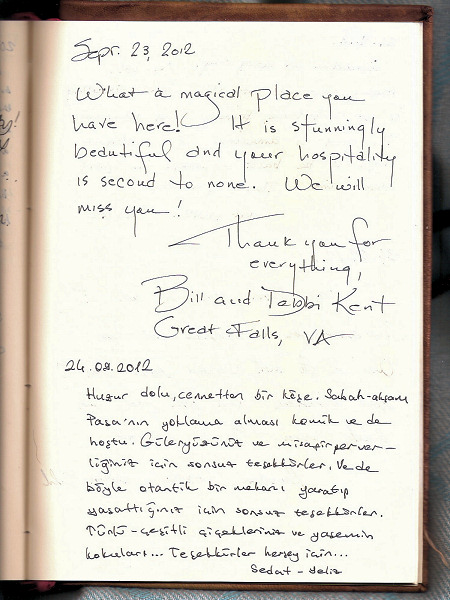 Sept. 23, 2012
What a magical place you
have here! It is stunningly
beautiful and your hospitality
is second to none. We will
miss you!
Thank you for
everything,
Bill and Debbi Kent
Great Falls, VA
24.09.2012
Huzur dolu, cennetten bir köşe. Sabah-akşam
Paşa'nın yoklama alması komik ve de
hoştu. Güleryüzünüz ve misafirperver-
liğiniz için sonsuz teşekkürler. Ve de
böyle otantik bir mekanı yaratıp
yaşattığınız için sonsuz teşekkürler.
Türlü-çeşitli çiçekleriniz ve yasemin
kokuları... Teşekkürler herşey için...
Sedat - Yeliz